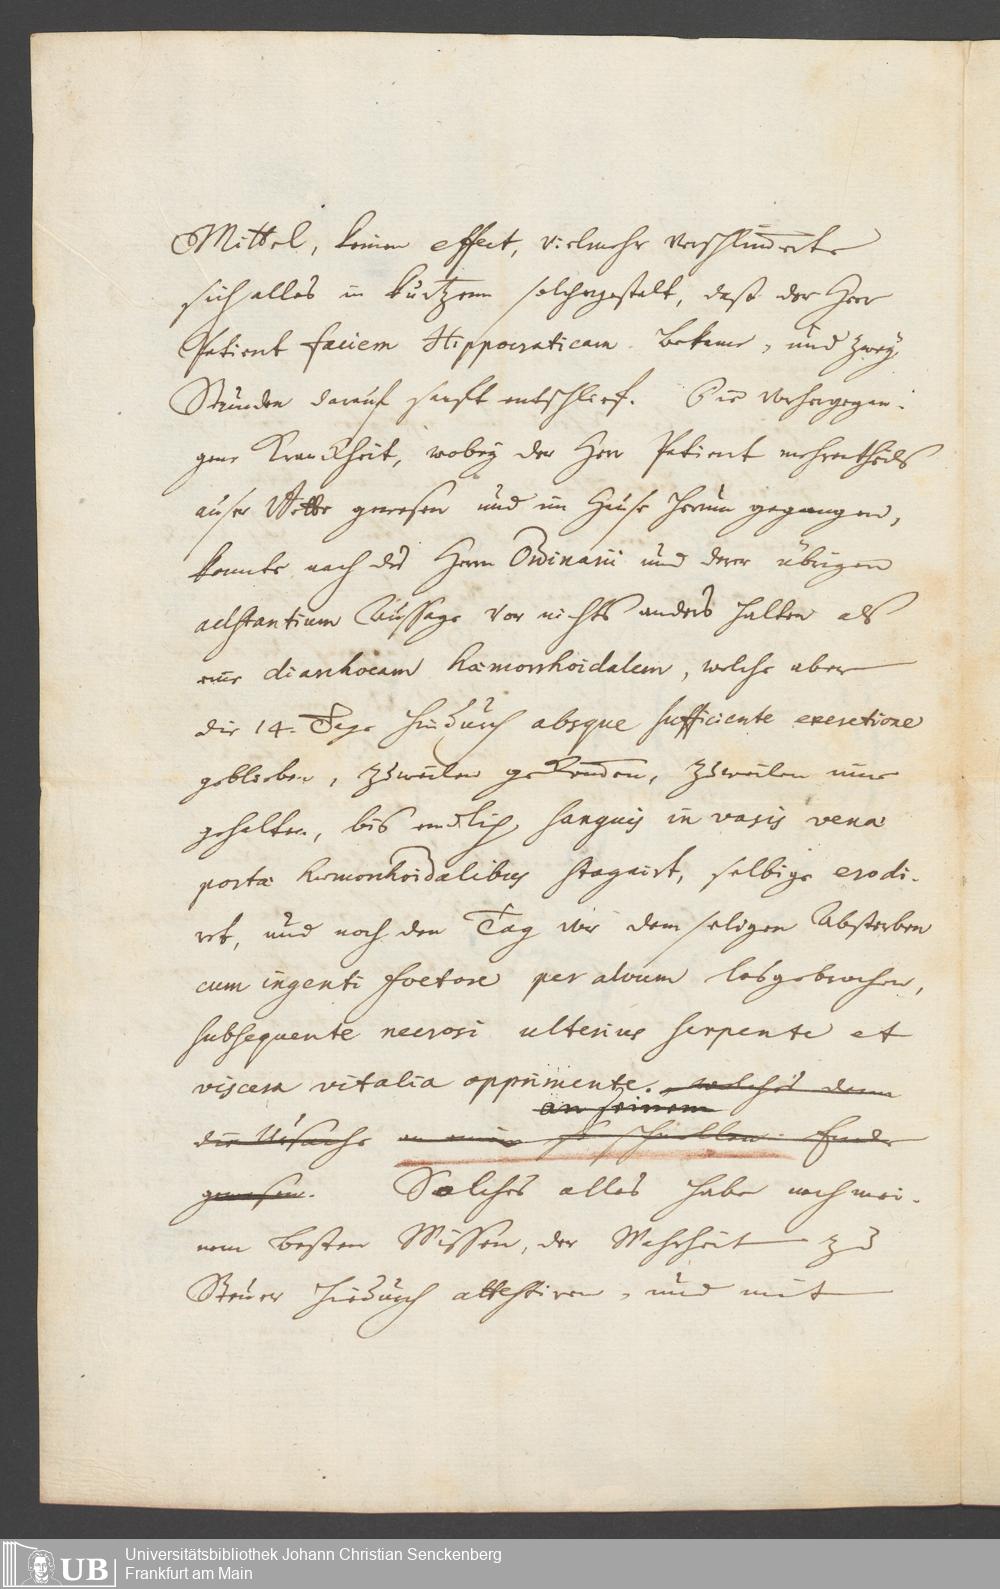 Mittel, keinen effect, vielmehr verschlimmerte
sich alles in kurtzem solchergestalt, daß der Herr
Patient faciem Hippocraticam bekame, und zwey
Stunden darauf sanft entschlief. Die vorhergegan-
gene Kranckheit, wobey der Herr Patient mehrentheils
auser Bette gewesen und im Hause herum gegangen,
konnte nach des Herrn Ordinarii und derer übrigen
adstantium Aussage vor nichts anders halten als
eine diarrhoeam haemorrhoidalem, welche aber
die 14. Tage hindurch absque sufficiente excretione
geblieben, zuweilen inne
gehalten, bis endlich, sanguis in vasis venae
portae haemorrhoidalibus stagnirt, selbige erodi-
ret, und noch den Tag vor dem seligen Absterben
cum ingenti foetore per alvum losgebrochen,
subsequente necrosi ulterius serpente et
viscera vitalia opprimente. welches dann
an seinem
die Ursache so schnellen Ende
gewesen. Solches alles habe nach mei-
nem besten Wissen, der Wahrheit zu
Steuer hiedurch attestiren, und mit
Universitätsbibliothek Johann Christian Senckenberg
Frankfurt am Main
UB